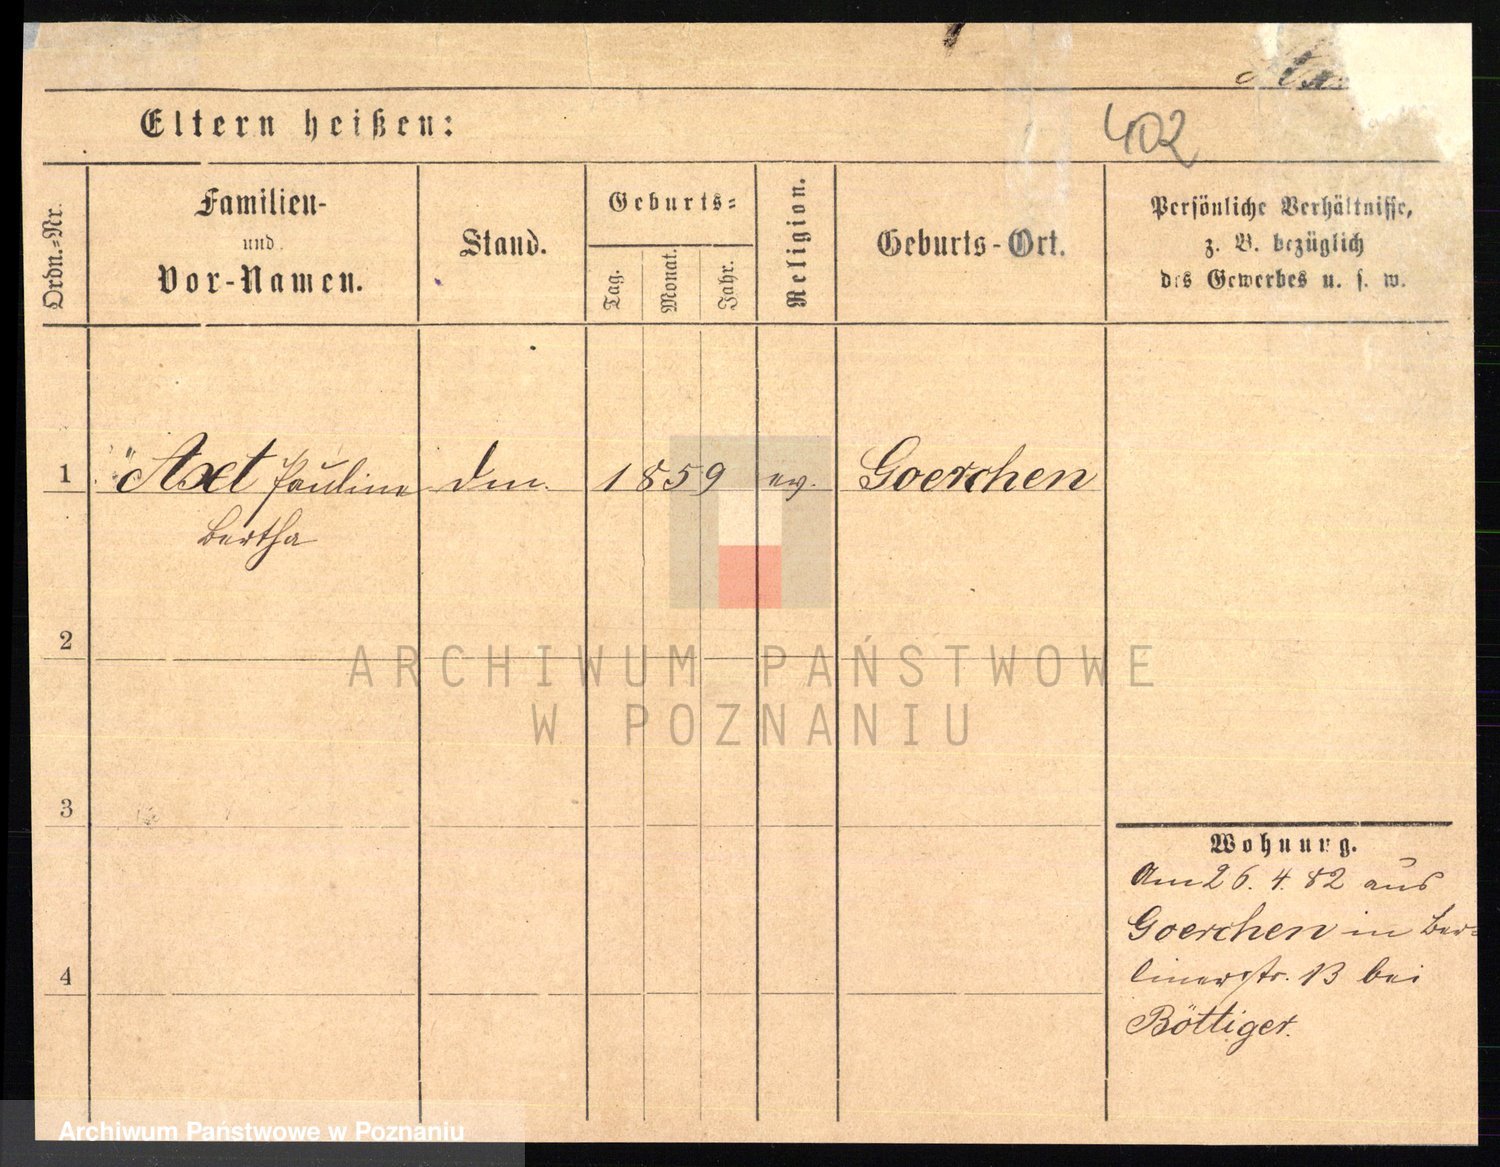 402
Eltern heißen:
Ordn.-Nr.
Familien-
und
Vor-Namen.
Stand.
Geburts-
Tag.
Monat.
Jahr.
Religion.
Geburts-Ort.
Persönliche Verhältnisse,
z. B. bezüglich
des Gewerbes u. s. w.
1 Axet Pauline 1859 ev. Goerchen
Bertha
2
3
4
Wohnung.
Am 26. 4. 82 aus
Goerchen in Ber-
linerstr. 13 bei
Böttiger.
ARCHIWUM PAŃSTWOWE
W POZNANIU
Archiwum Państwowe w Poznaniu